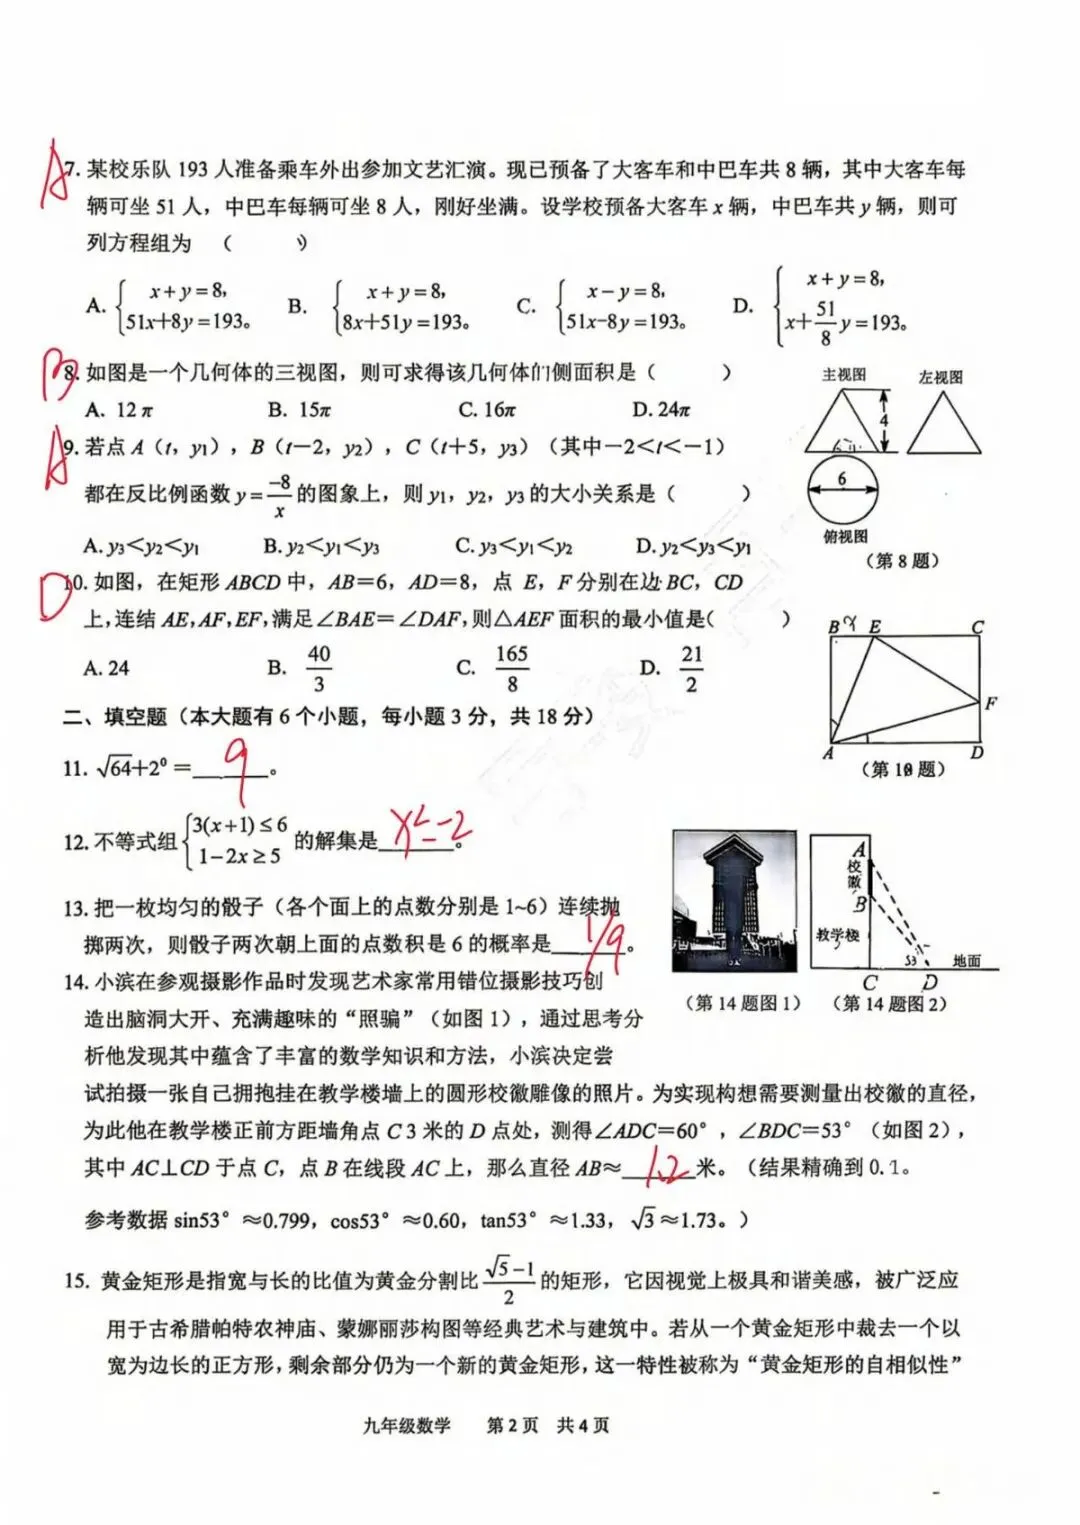 A
7. 某校乐队 193 人准备乘车外出参加文艺汇演。现已预备了大客车和中巴车共 8 辆，其中大客车每
辆可坐 51 人，中巴车每辆可坐 8 人，刚好坐满。设学校预备大客车 x 辆，中巴车共 y 辆，则可
列方程组为 （ ）
A. { x＋y＝8， 51x＋8y＝193。 B. { x＋y＝8， 8x＋51y＝193。 C. { x－y＝8， 51x－8y＝193。 D. { x＋y＝8， x＋51/8 y＝193。
B
8. 如图是一个几何体的三视图，则可求得该几何体的侧面积是（ ）
A. 12π B. 15π C. 16π D. 24π
主视图 左视图
4
6
俯视图
（第 8 题）
A
9. 若点 A（t，y1），B（t－2，y2），C（t＋5，y3）（其中－2＜t＜－1）
都在反比例函数 y＝-8/x 的图象上，则 y1，y2，y3 的大小关系是（ ）
A. y3＜y2＜y1 B. y2＜y1＜y3 C. y3＜y1＜y2 D. y2＜y3＜y1
D
10. 如图，在矩形 ABCD 中，AB＝6，AD＝8，点 E，F 分别在边 BC，CD
上，连结 AE，AF，EF，满足∠BAE＝∠DAF，则△AEF 面积的最小值是( )
A. 24 B. 40/3 C. 165/8 D. 21/2
B x E C
F
A D
（第 10 题）
二、填空题（本大题有 6 个小题，每小题 3 分，共 18 分）
11. √64+2⁰ ＝ 9 。
12. 不等式组 { 3(x+1)≤6 1－2x≥5 的解集是 x≤-2 。
13. 把一枚均匀的骰子（各个面上的点数分别是 1~6）连续抛
掷两次，则骰子两次朝上面的点数积是 6 的概率是 1/9 。
A
校
徽
B
教学楼
53 地面
C D
（第 14 题图 1） （第 14 题图 2）
14. 小滨在参观摄影作品时发现艺术家常用错位摄影技巧创
造出脑洞大开、充满趣味的“照骗”（如图 1），通过思考分
析他发现其中蕴含了丰富的数学知识和方法，小滨决定尝
试拍摄一张自己拥抱挂在教学楼墙上的圆形校徽雕像的照片。为实现构想需要测量出校徽的直径，
为此他在教学楼正前方距墙角点 C 3 米的 D 点处，测得∠ADC＝60°，∠BDC＝53°（如图 2），
其中 AC⊥CD 于点 C，点 B 在线段 AC 上，那么直径 AB≈ 1.2 米。（结果精确到 0.1。
参考数据 sin53°≈0.799，cos53°≈0.60，tan53°≈1.33，√3≈1.73。）
15. 黄金矩形是指宽与长的比值为黄金分割比 (√5－1)/2 的矩形，它因视觉上极具和谐美感，被广泛应
用于古希腊帕特农神庙、蒙娜丽莎构图等经典艺术与建筑中。若从一个黄金矩形中裁去一个以
宽为边长的正方形，剩余部分仍为一个新的黄金矩形，这一特性被称为“黄金矩形的自相似性”
九年级数学 第 2 页 共 4 页